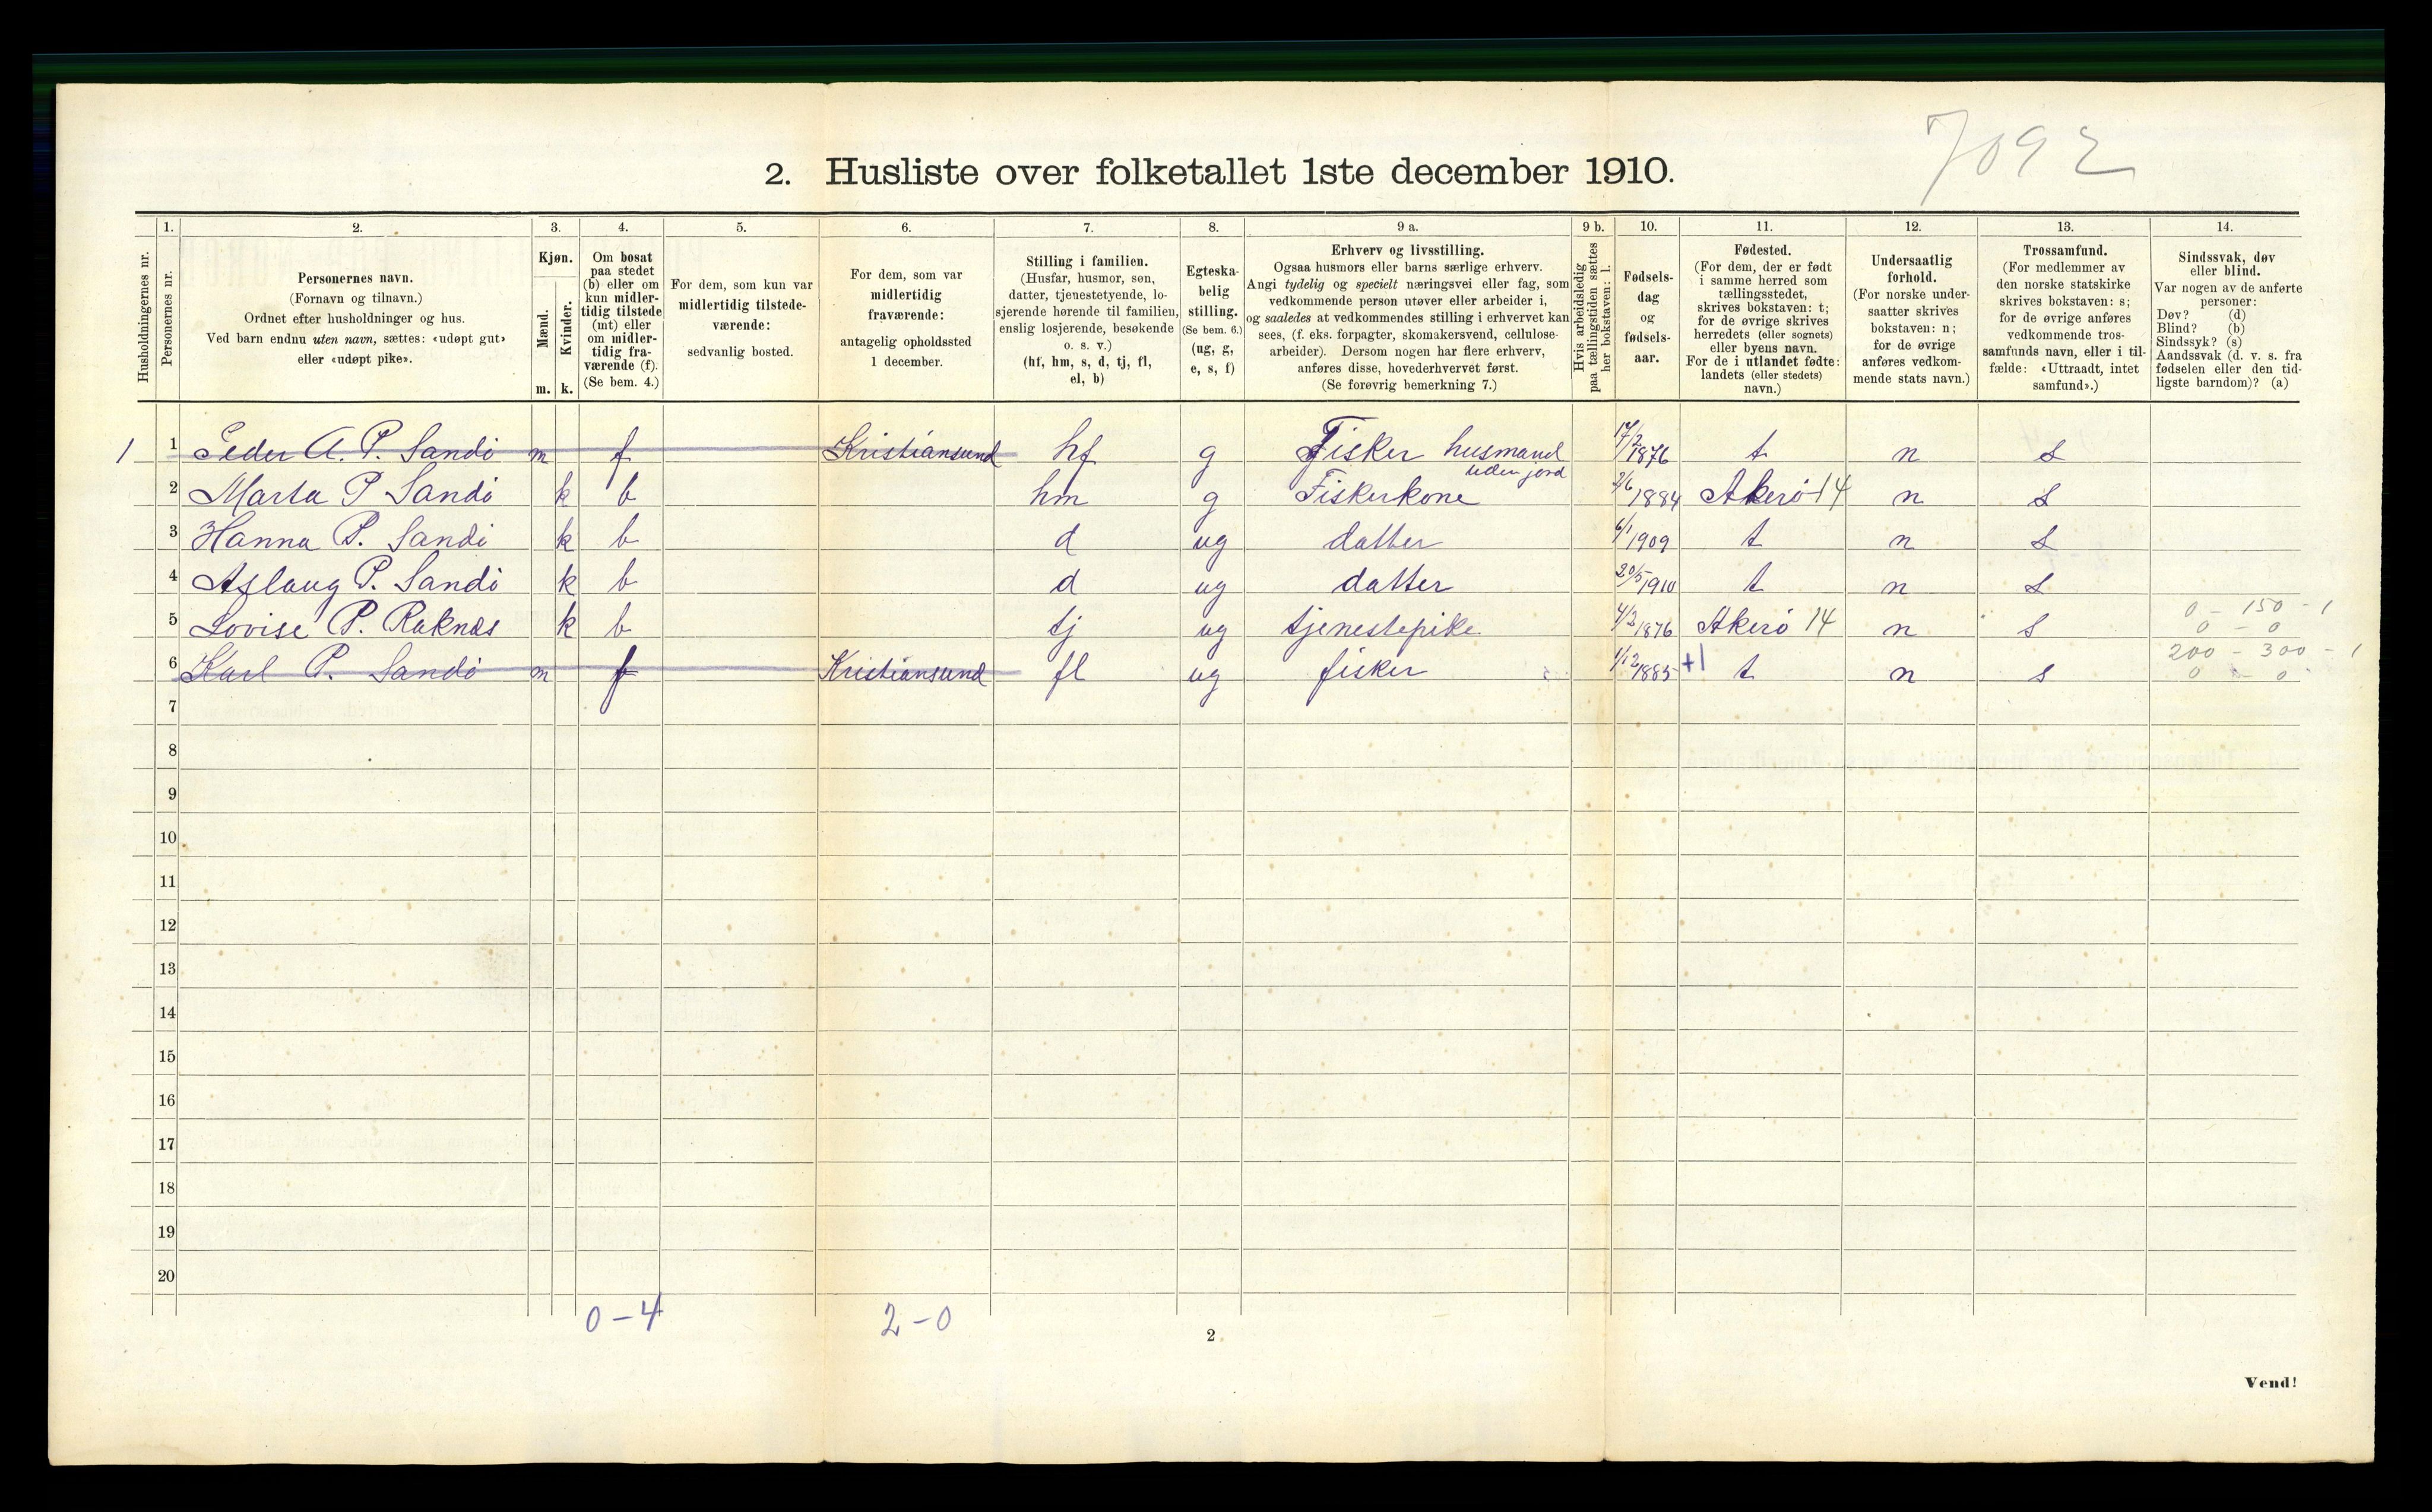 7092
2. Husliste over folketallet 1ste december 1910.
Husholdningernes nr.
1.
Personernes nr.
2.
Personernes navn.
(Fornavn og tilnavn.)
Ordnet efter husholdninger og hus.
Ved barn endnu uten navn, sættes: «udøpt gut»
eller «udøpt pike».
3.
Kjøn.
Mænd.
Kvinder.
m. k.
4.
Om bosat
paa stedet
(b) eller om
kun midler-
tidig tilstede
(mt) eller
om midler-
tidig fra-
værende (f).
(Se bem. 4.)
5.
For dem, som kun var
midlertidig tilstede-
værende:
sedvanlig bosted.
6.
For dem, som var
midlertidig
fraværende:
antagelig opholdssted
1 december.
7.
Stilling i familien.
(Husfar, husmor, søn,
datter, tjenestetyende, lo-
sjerende hørende til familien,
enslig losjerende, besøkende
o. s. v.)
(hf, hm, s, d, tj, fl,
el, b)
8.
Egteska-
belig
stilling.
(Se bem. 6.)
(ug, g,
e, s, f)
9 a.
Erhverv og livsstilling.
Ogsaa husmors eller barns særlige erhverv.
Angi tydelig og specielt næringsvei eller fag, som
vedkommende person utøver eller arbeider i,
og saaledes at vedkommendes stilling i erhvervet kan
sees, (f. eks. forpagter, skomakersvend, cellulose-
arbeider). Dersom nogen har flere erhverv,
anføres disse, hovederhvervet først.
(Se forøvrig bemerkning 7.)
9 b.
Hvis arbeidsledig
paa tællingstiden sættes
her bokstaven: l.
10.
Fødsels-
dag
og
fødsels-
aar.
11.
Fødested.
(For dem, der er født
i samme herred som
tællingsstedet,
skrives bokstaven: t;
for de øvrige skrives
herredets (eller sognets)
eller byens navn.
For de i utlandet fødte:
landets (eller stedets)
navn.)
12.
Undersaatlig
forhold.
(For norske under-
saatter skrives
bokstaven: n;
for de øvrige
anføres vedkom-
mende stats navn.)
13.
Trossamfund.
(For medlemmer av
den norske statskirke
skrives bokstaven: s;
for de øvrige anføres
vedkommende tros-
samfunds navn, eller i til-
fælde: «Uttraadt, intet
samfund».)
14.
Sindssvak, døv
eller blind.
Var nogen av de anførte
personer:
Døv? (d)
Blind? (b)
Sindssyk? (s)
Aandssvak (d. v. s. fra
fødselen eller den tid-
ligste barndom)? (a)
1 1 Peder A. P. Sandö m f Kristiansund hf g Fisker husmand uden jord 17/2 1876 t n s
2 Marta P Sandö k b hm g Fiskerkone 2/6 1884 Akerö 14 n s
3 Hanna P. Sandö k b d ug datter 6/1 1909 t n s
4 Aslaug P. Sandö k b d ug datter 20/5 1910 t n s
5 Lovise P. Raknæs k b tj ug tjenestepike 4/2 1876 Akerö 14 n s 0 - 150 - 1
0 - 0
6 Karl P. Sandö m f Kristiansund fl ug fisker 1/12 1885 +1 t n s 200 - 300 - 1
0 - 0
7
8
9
10
11
12
13
14
15
16
17
18
19
20
0 - 4 2 - 0
2
Vend!